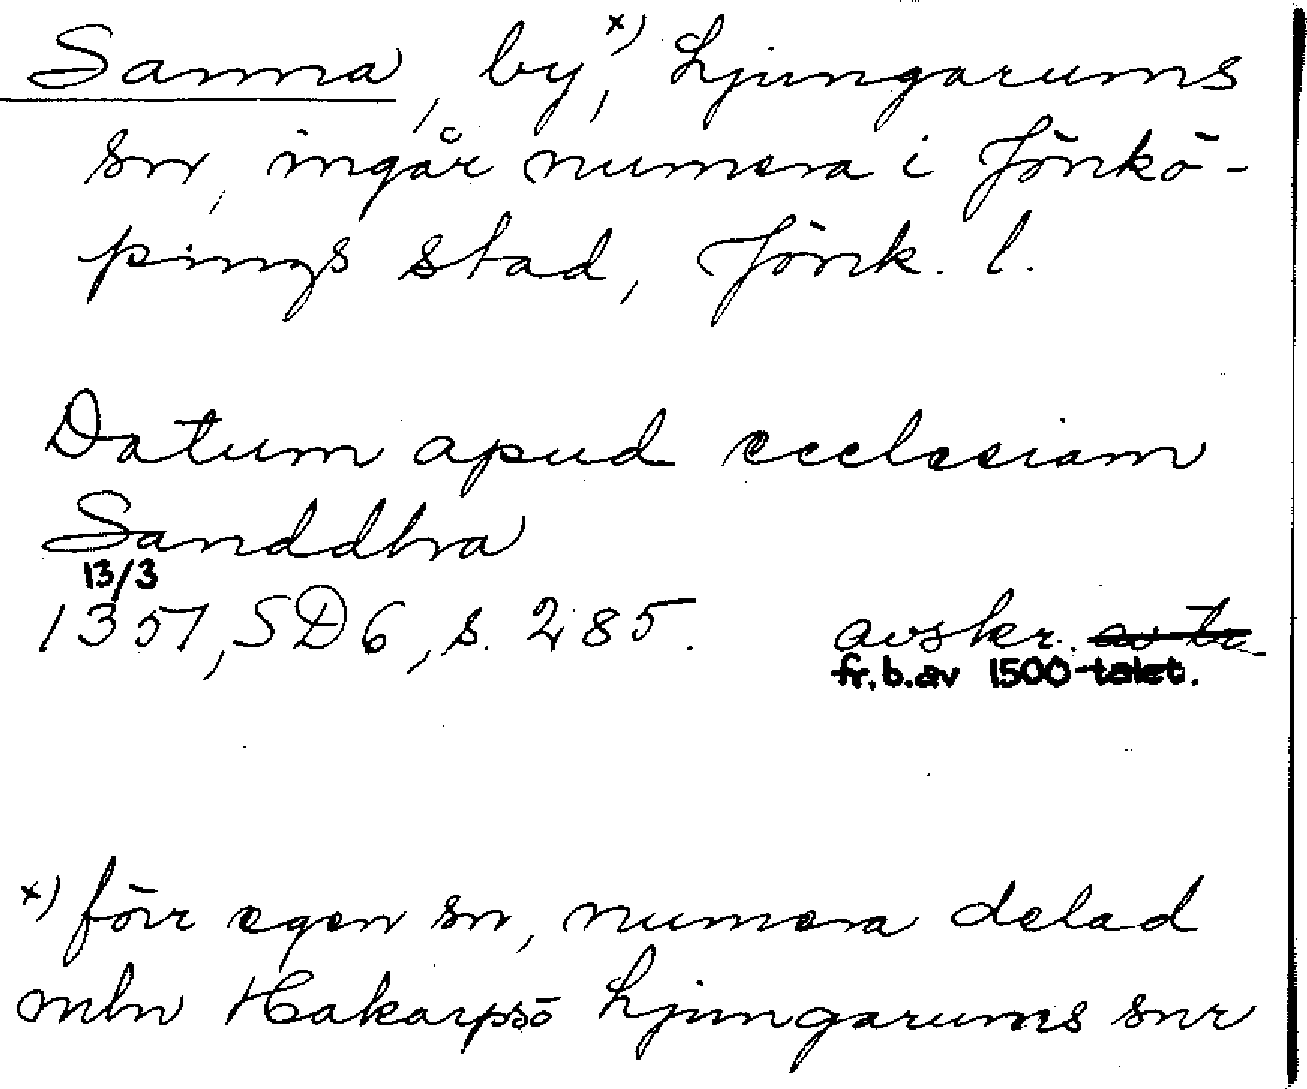 Sanna, by,x) Ljungarums
sn, ingår numera i Jönkö-
pings stad, Jönk. l.
Datum apud ecclesiam
Sanddhra
13/3
1351, SD6, s. 285. avskr.
fr. b. av 1500-talet.
x) förr egen sn, numera delad
mln Hakarps o Ljungarums snr